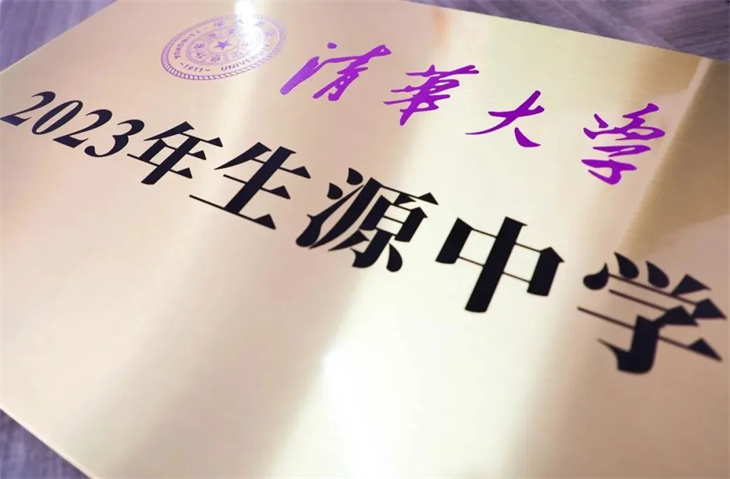 清華大学
2023年生源中学
UNIVERSITY
-1911-